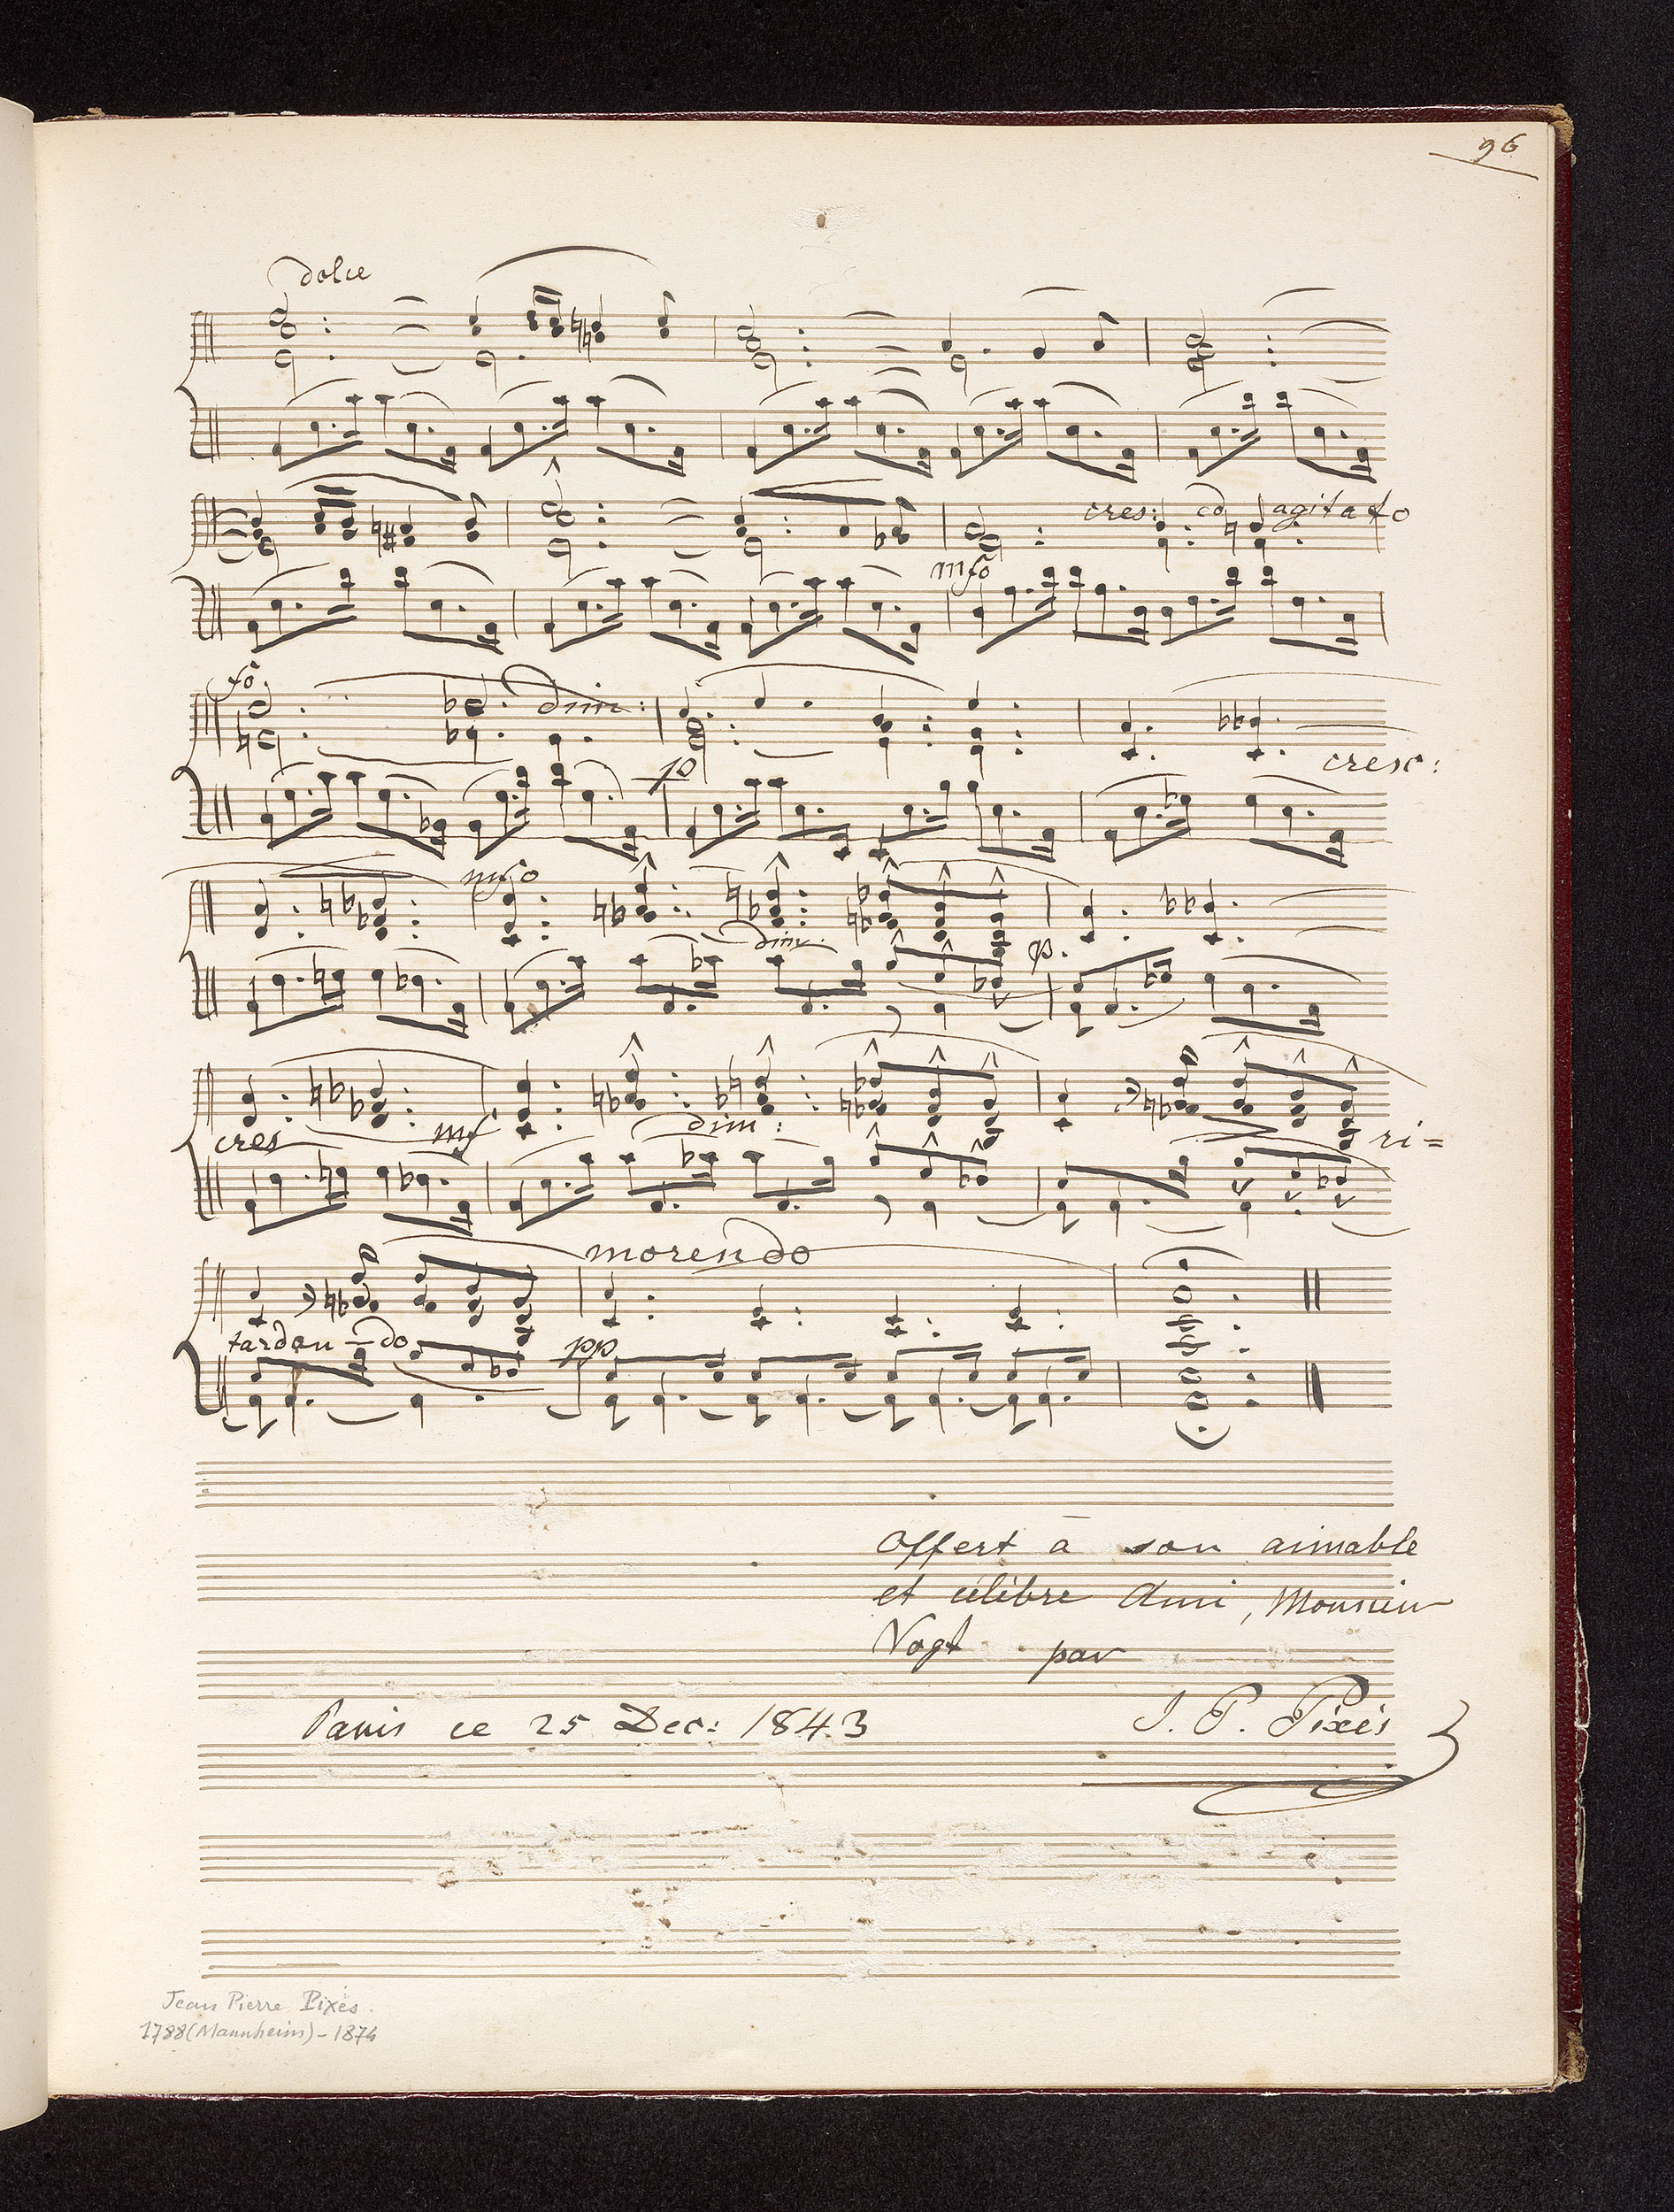 96
dolce
cres: cdo agitato
mfo
fo
dim:
p
cresc:
mfo
dim.
p.
cres
mf
dim:
ri=
morendo
tardan-do
pp
Offert à son aimable
et célèbre Ami, Monsieur
Vogt par
Paris ce 25 Dec: 1843
J. P. Pixis
Jean Pierre Pixés.
1788 (Mannheim) - 1874